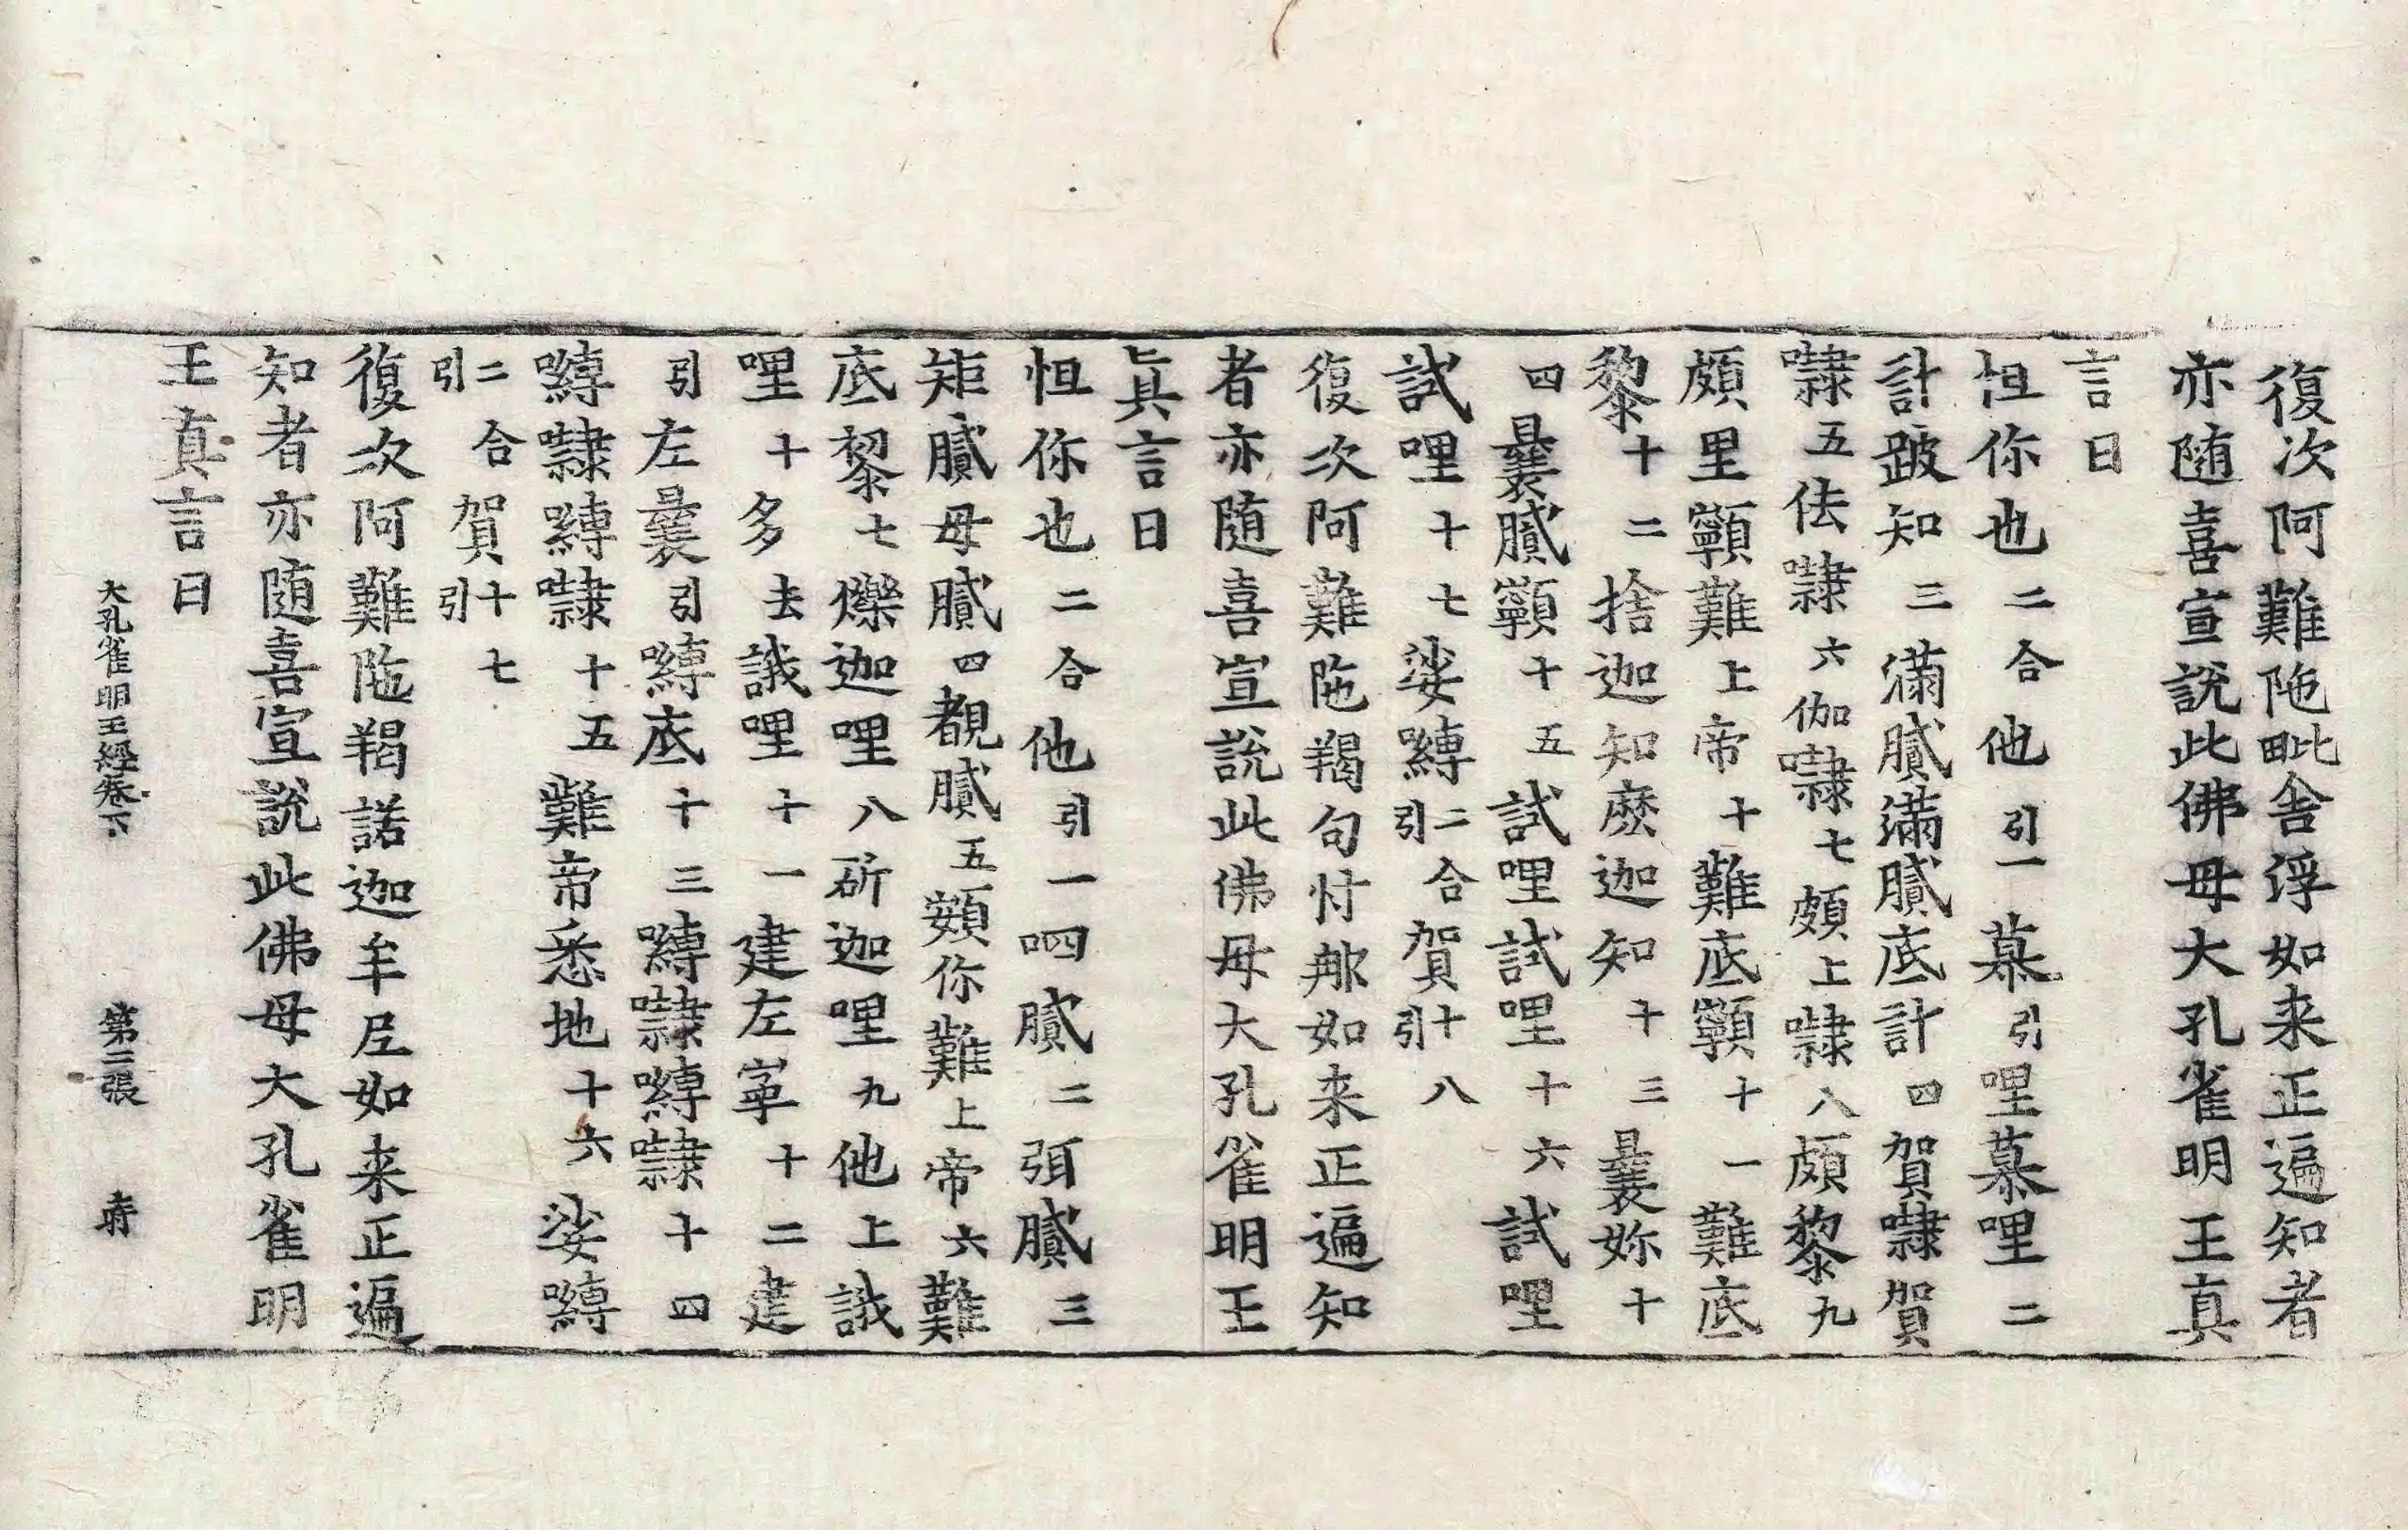 復次阿難陁毗舍浮如来正遍知者
亦随喜宣說此佛母大孔雀明王真
言曰
怛你也二合他引一慕引哩慕哩二
計跛知三滿膩滿膩底計四賀㘑賀
㘑五佉㘑六伽㘑七頗上㘑八頗黎九
頗里顙難上帝十難底顙十一難底
黎十二捨迦知麽迦知十三曩妳十
四曩膩顙十五試哩試哩十六試哩
試哩十七娑嚩引二合賀引十八
復次阿難陁羯句忖那如来正遍知
者亦隨喜宣說此佛母大孔雀明王
真言曰
怛你也二合他引一呬膩二弭膩三
矩膩母膩四覩膩五頞你難上帝六難
底黎七爍迦哩八斫迦哩九他上誐
哩十多去誐哩十一建左寧十二建
引左曩引嚩底十三嚩㘑嚩㘑十四
嚩㘑嚩㘑十五難帝悉地十六娑嚩
引二合賀引十七
復次阿難陁羯諾迦牟尼如来正遍
知者亦随喜宣說此佛母大孔雀明
王真言曰
大孔雀明王經卷下 第二張